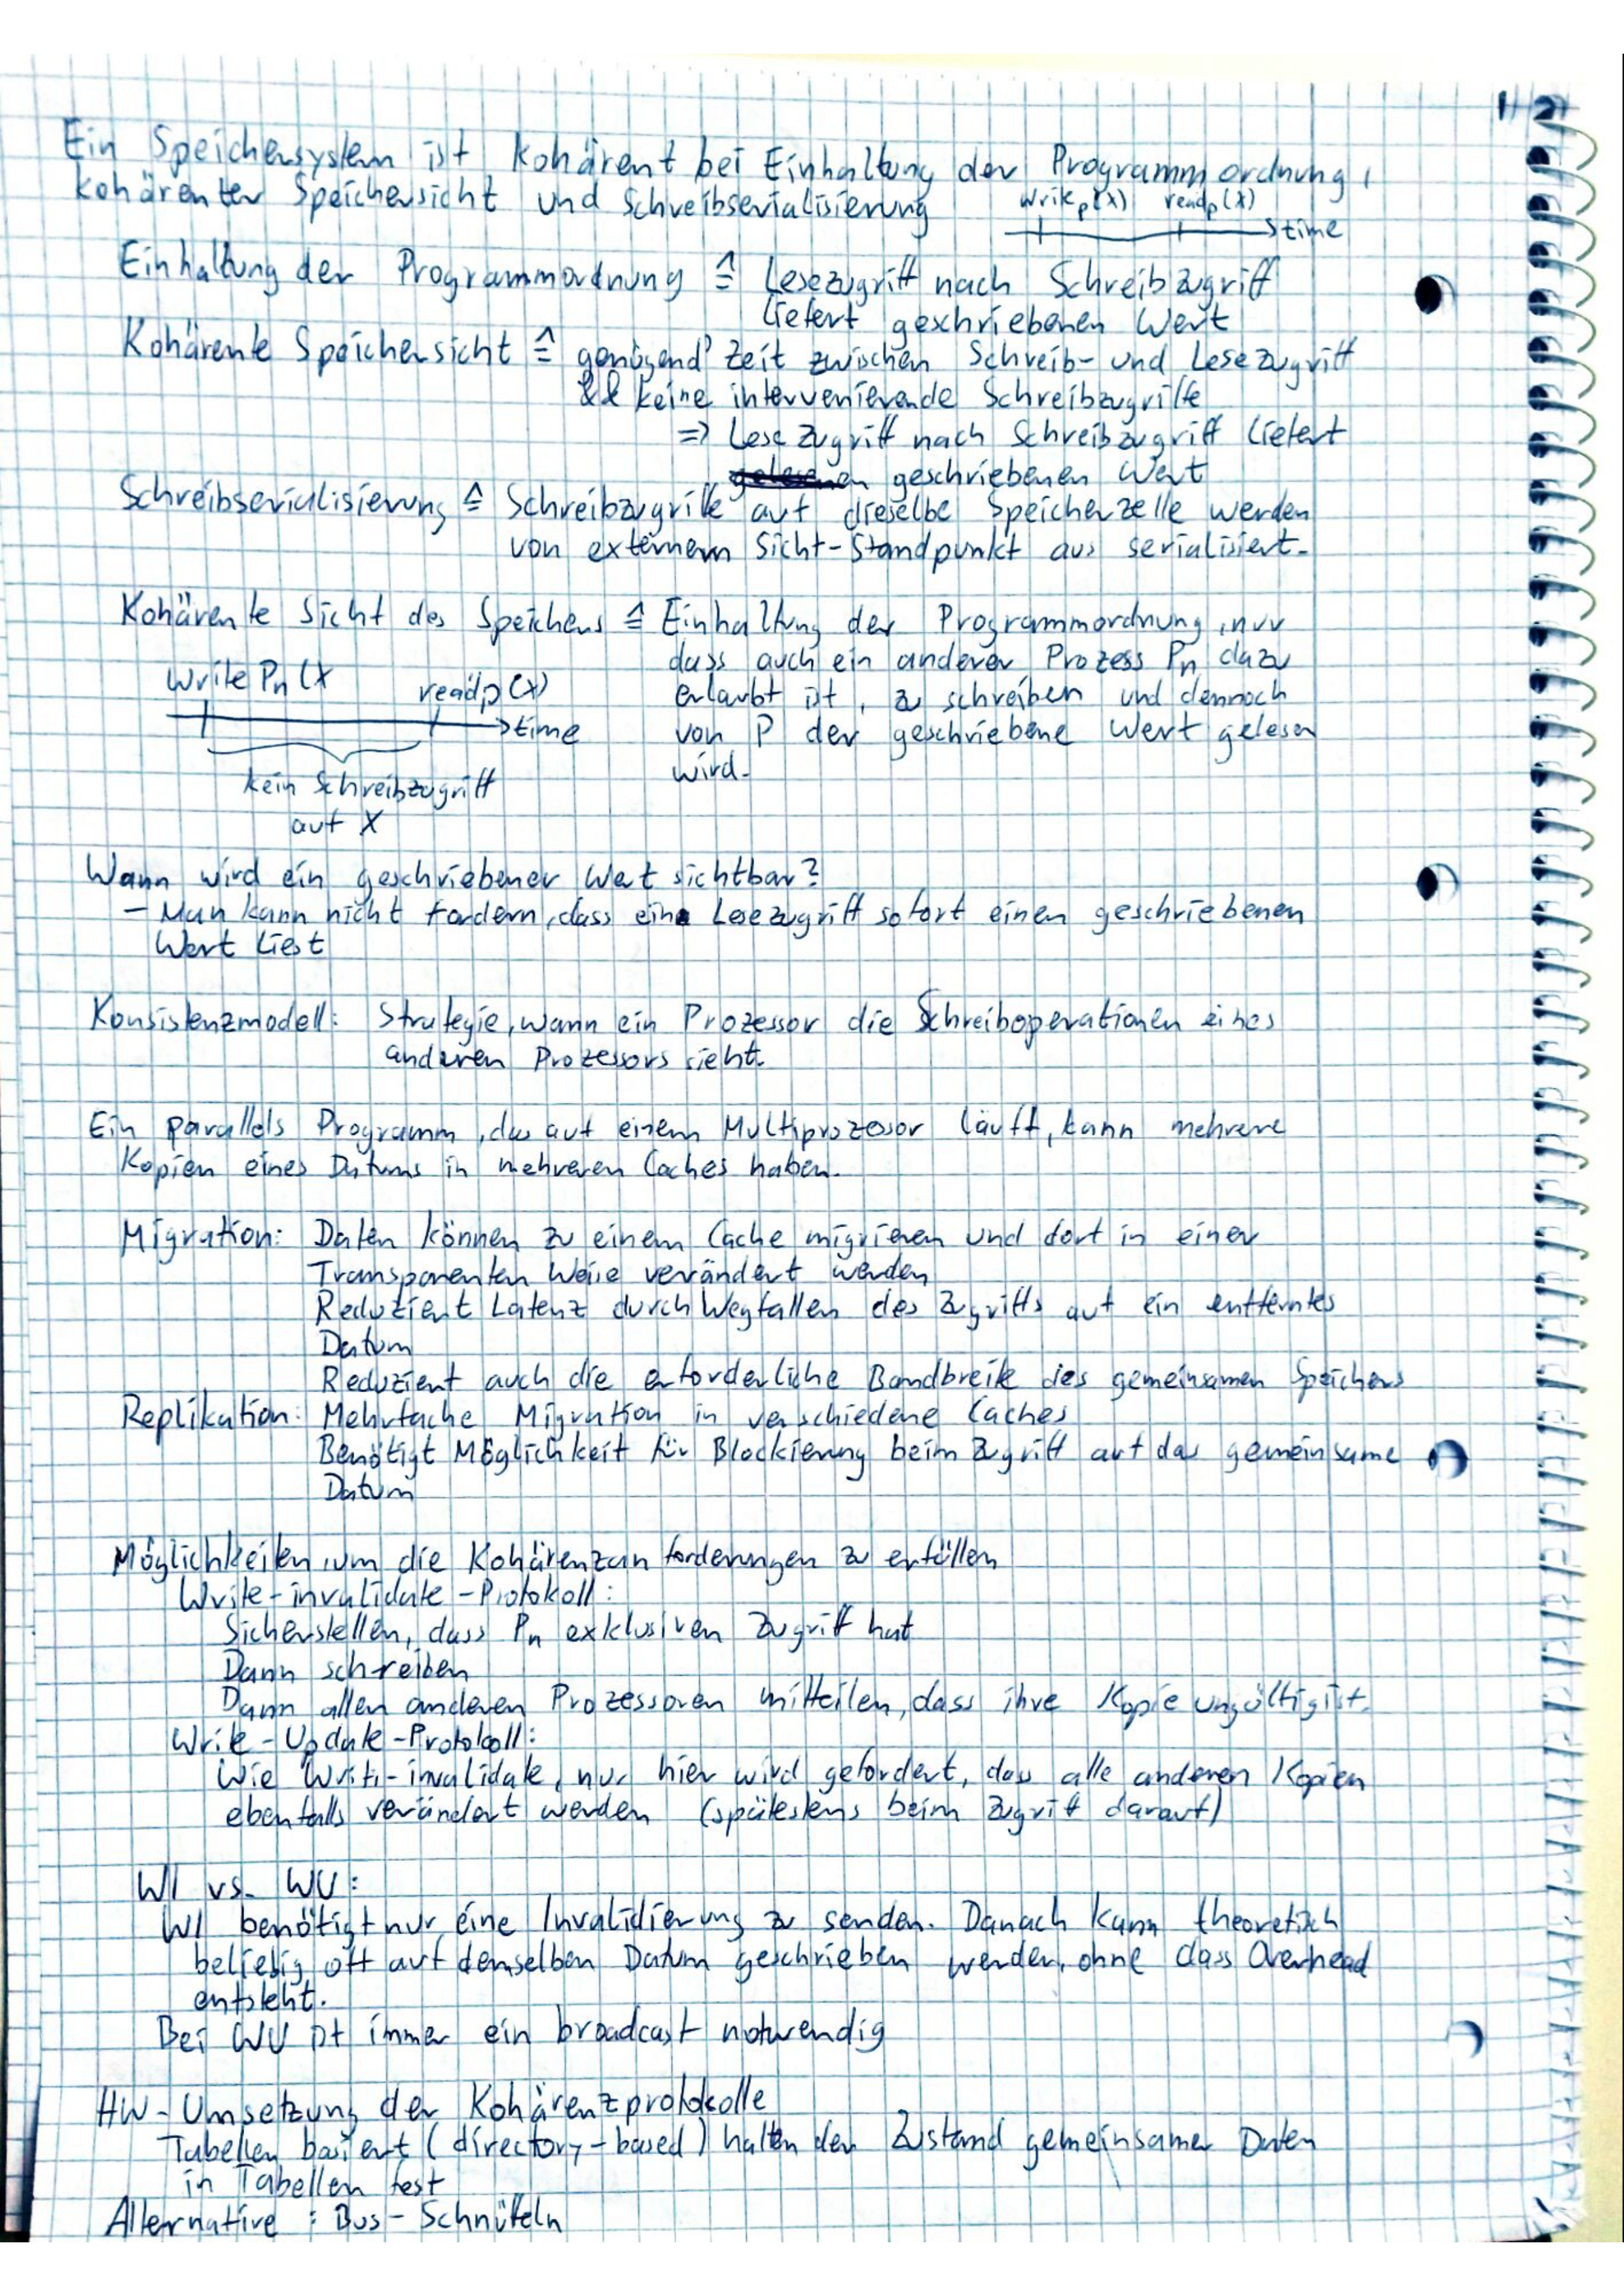 1 2
Ein Speichersystem ist kohärent bei Einhaltung der Programmordnung,
kohärenter Speichersicht und Schreibserialisierung
write_p(x) read_p(x)
time
Einhaltung der Programmordnung ≙ Lesezugriff nach Schreibzugriff
liefert geschriebenen Wert
Kohärente Speichersicht ≙ genügend Zeit zwischen Schreib- und Lesezugriff
&& keine intervenierende Schreibzugriffe
=> Lesezugriff nach Schreibzugriff liefert
geschriebenen Wert
Schreibserialisierung ≙ Schreibzugriffe auf dieselbe Speicherzelle werden
von externem Sicht-Standpunkt aus serialisiert.
Kohärente Sicht des Speichers ≙ Einhaltung der Programmordnung, nur
dass auch ein anderer Prozess Pn dazu
erlaubt ist, zu schreiben und dennoch
von P der geschriebene Wert gelesen
wird.
write Pn (x read_p(x)
time
kein Schreibzugriff
auf X
Wann wird ein geschriebener Wert sichtbar?
- Man kann nicht fordern, dass ein Lesezugriff sofort einen geschriebenen
Wert liest
Konsistenzmodell: Strategie, wann ein Prozessor die Schreiboperationen eines
anderen Prozessors sieht.
Ein parallels Programm, das auf einem Multiprozessor läuft, kann mehrere
Kopien eines Datums in mehreren Caches haben.
Migration: Daten können zu einem Cache migrieren und dort in einer
Transparenten Weise verändert werden
Reduziert Latenz durch Wegfallen des Zugriffs auf ein entferntes
Datum
Reduziert auch die erforderliche Bandbreite des gemeinsamen Speichers
Replikation: Mehrfache Migration in verschiedene Caches
Benötigt Möglichkeit für Blockierung beim Zugriff auf das gemeinsame
Datum
Möglichkeiten, um die Kohärenzanforderungen zu erfüllen
Write-invalidate-Protokoll:
Sicherstellen, dass Pn exklusiven Zugriff hat
Dann schreiben
Dann allen anderen Prozessoren mitteilen, dass ihre Kopie ungültig ist.
Write-Update-Protokoll:
Wie Write-invalidate, nur hier wird gefordert, dass alle anderen Kopien
ebenfalls verändert werden (spätestens beim Zugriff darauf)
WI vs. WU:
WI benötigt nur eine Invalidierung zu senden. Danach kann theoretisch
beliebig oft auf demselben Datum geschrieben werden, ohne dass Overhead
entsteht.
Bei WU ist immer ein broadcast notwendig
HW-Umsetzung der Kohärenzprotokolle
Tabellen basiert (directory-based) halten den Zustand gemeinsamer Daten
in Tabellen fest
Alternative: Bus-Schnüffeln